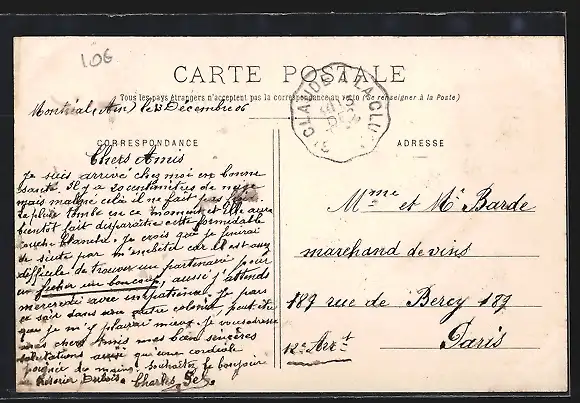 106
CARTE POSTALE
Tous les pays étrangers n'acceptent pas la correspondance au verso (Se renseigner à la Poste)
Montréal (Ain) le 13 Décembre 06
ST CLAUDE A LA CLU
CORRESPONDANCE
ADRESSE
Chers Amis
Je suis arrivé chez moi en bonne
santé. Il y a 20 centimètres de neige
mais malgré cela il ne fait pas
la pluie tombe en ce moment et Elle aura
bientôt fait disparaître cette formidable
couche blanche. Je crois que je finirai
de suite par m'embêter car il est assez
difficile de trouver un partenaire pour
en ficher un boucaut, aussi j'attends
mercredi avec impatience. Je pars
ce soir dans une autre colonie, peut être
que je m'y plairai mieux. Je vous adresse
mes chers Amis mes bien sincères
salutations ainsi qu'une cordiale
poignée de mains. Souhaitez le bonjour
Dubois. Charles
Mme et Mr Barde
marchand de vins
187 rue de Bercy 187
Paris
12e Arrt